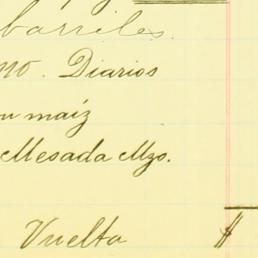 barriles.
mo. Diarios
maíz
Mesada Mzo.
Vuelta $